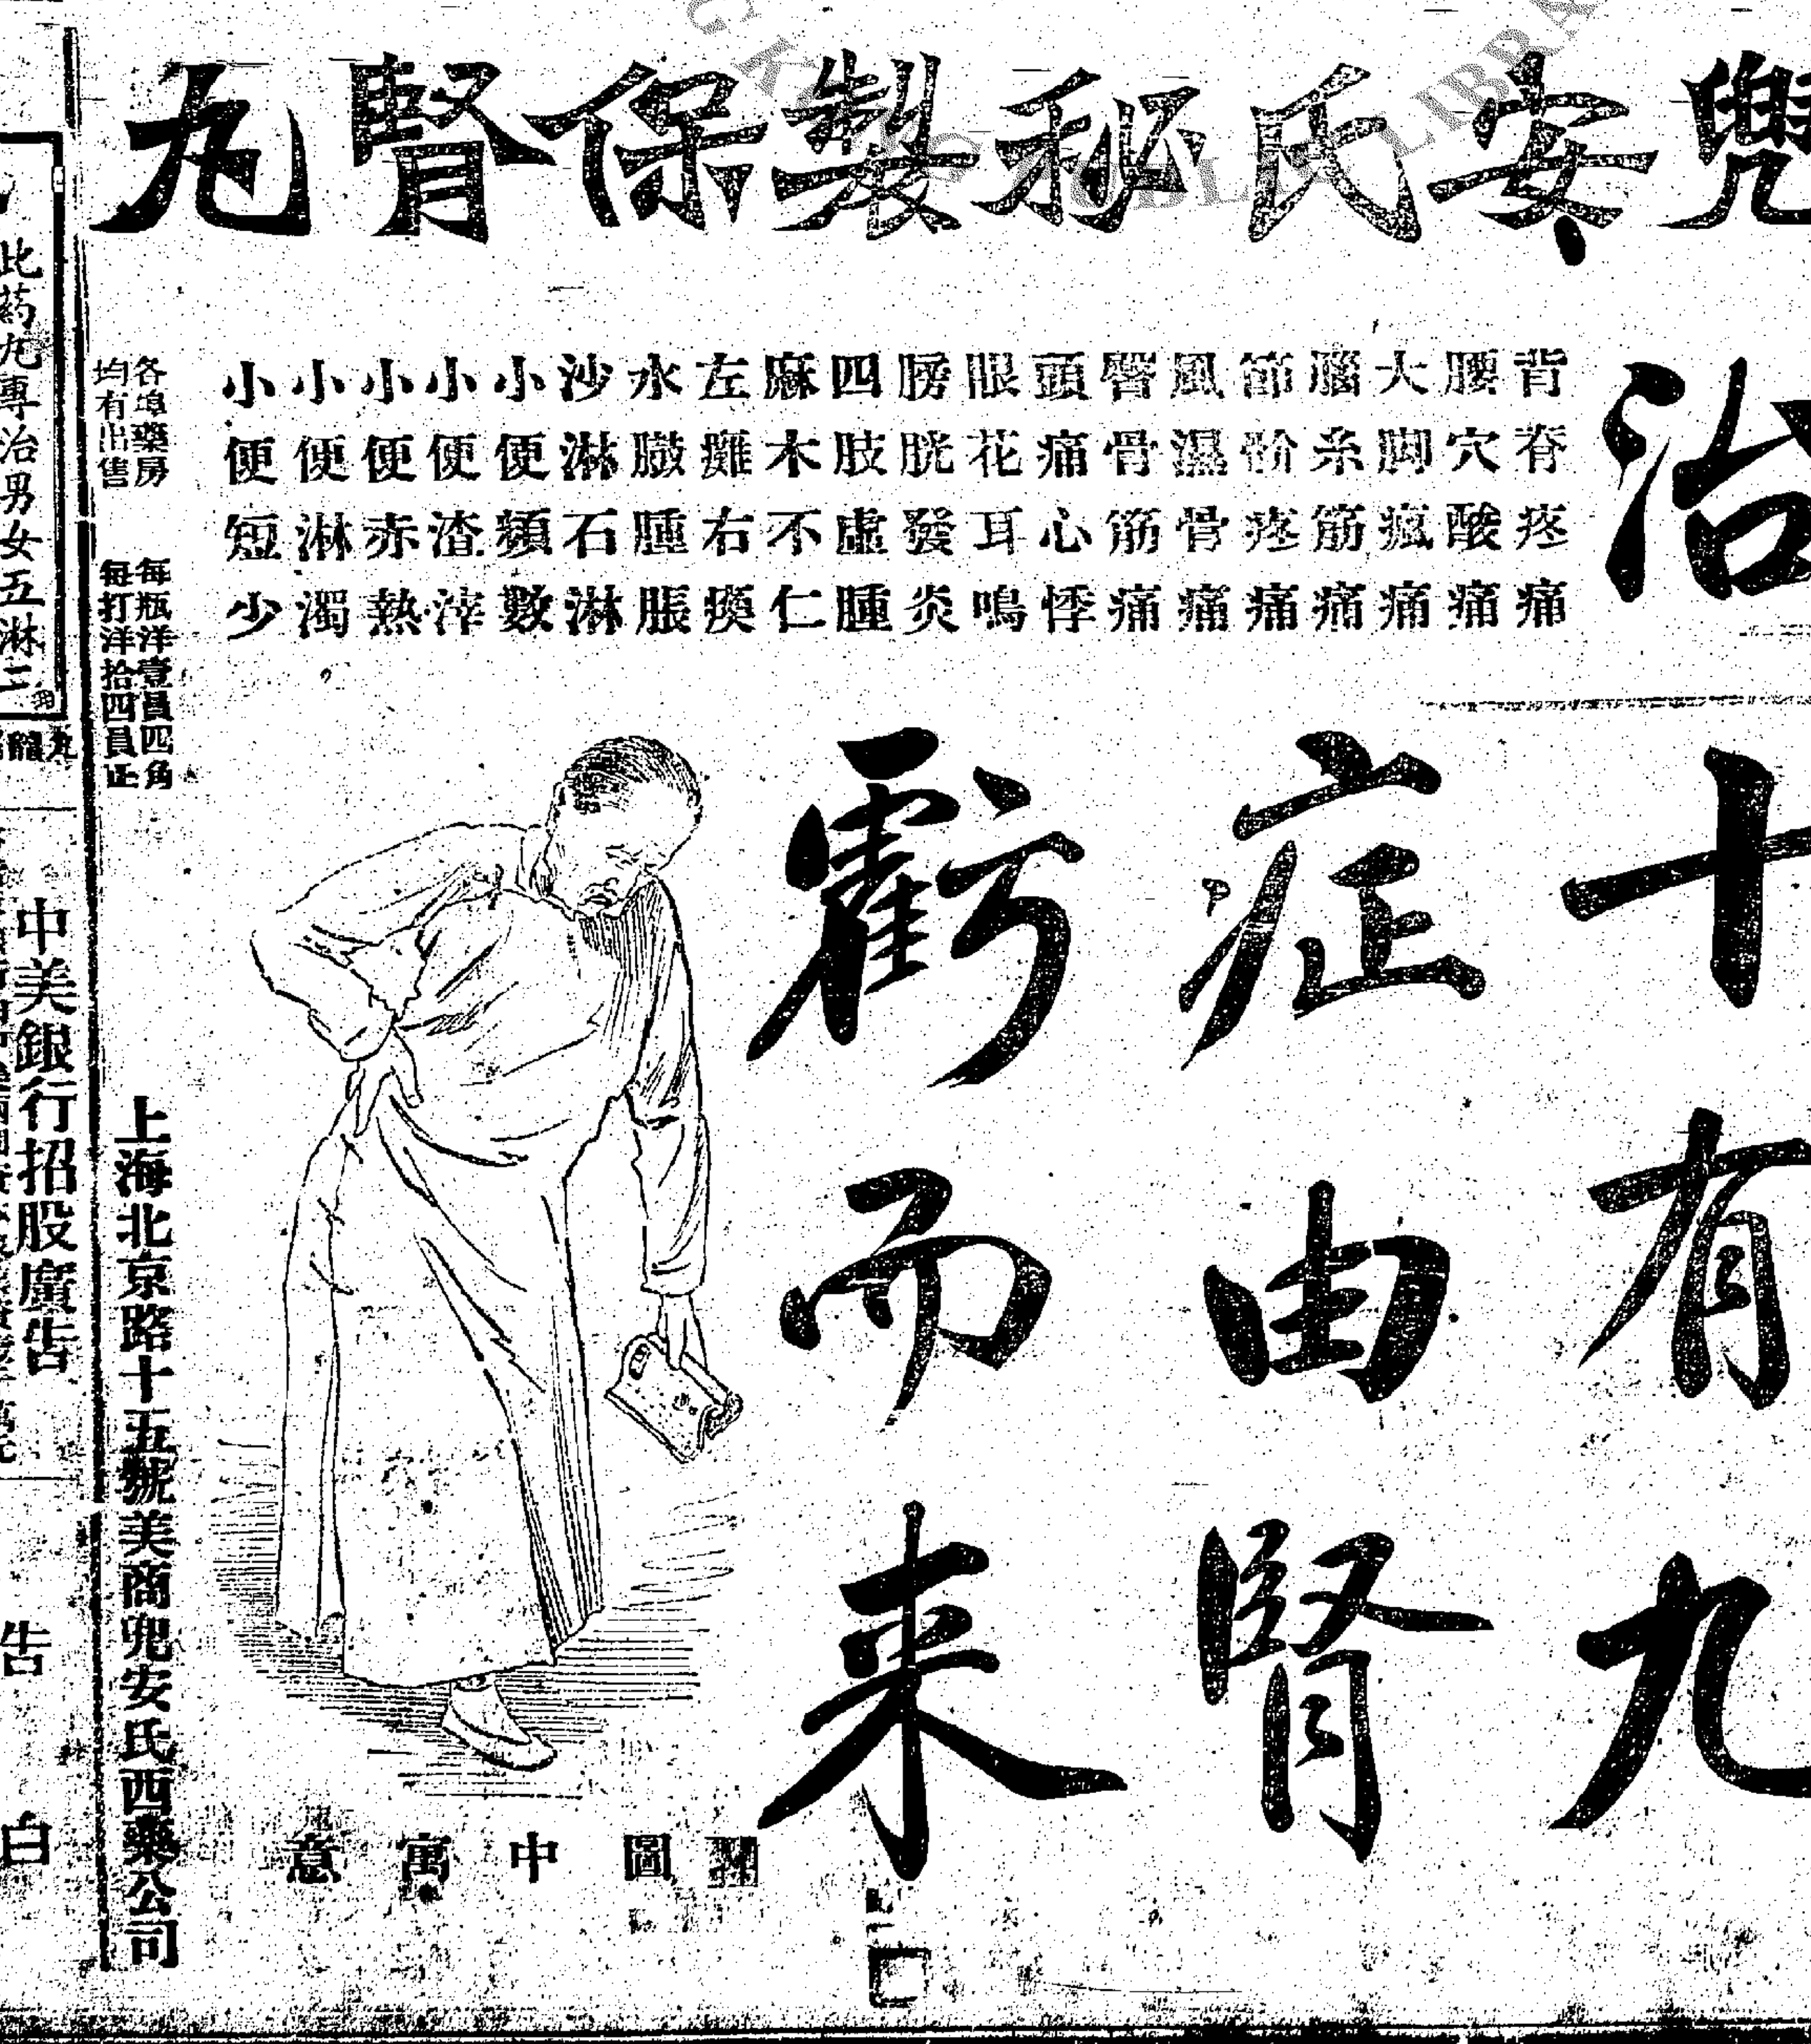 兜安氏秘製保腎丸
治
背脊疼痛
腰穴酸痛
大脚瘋痛
腦系筋痛
節骱疼痛
風濕骨痛
臀骨筋痛
頭痛心悸
眼花耳鳴
膀胱發炎
四肢虛腫
麻木不仁
左癱右瘓
水臌腫脹
沙淋石淋
小便頻數
小便渣滓
小便赤熱
小便淋濁
小便短少
十有九
症由腎
虧而来
圖中寓意
各埠藥房
均有出售
每瓶洋壹員四角
每打洋拾四員正
上海北京路十五號美商兜安氏西藥公司
此药丸專治男女五淋三
中美銀行招股廣告
告白